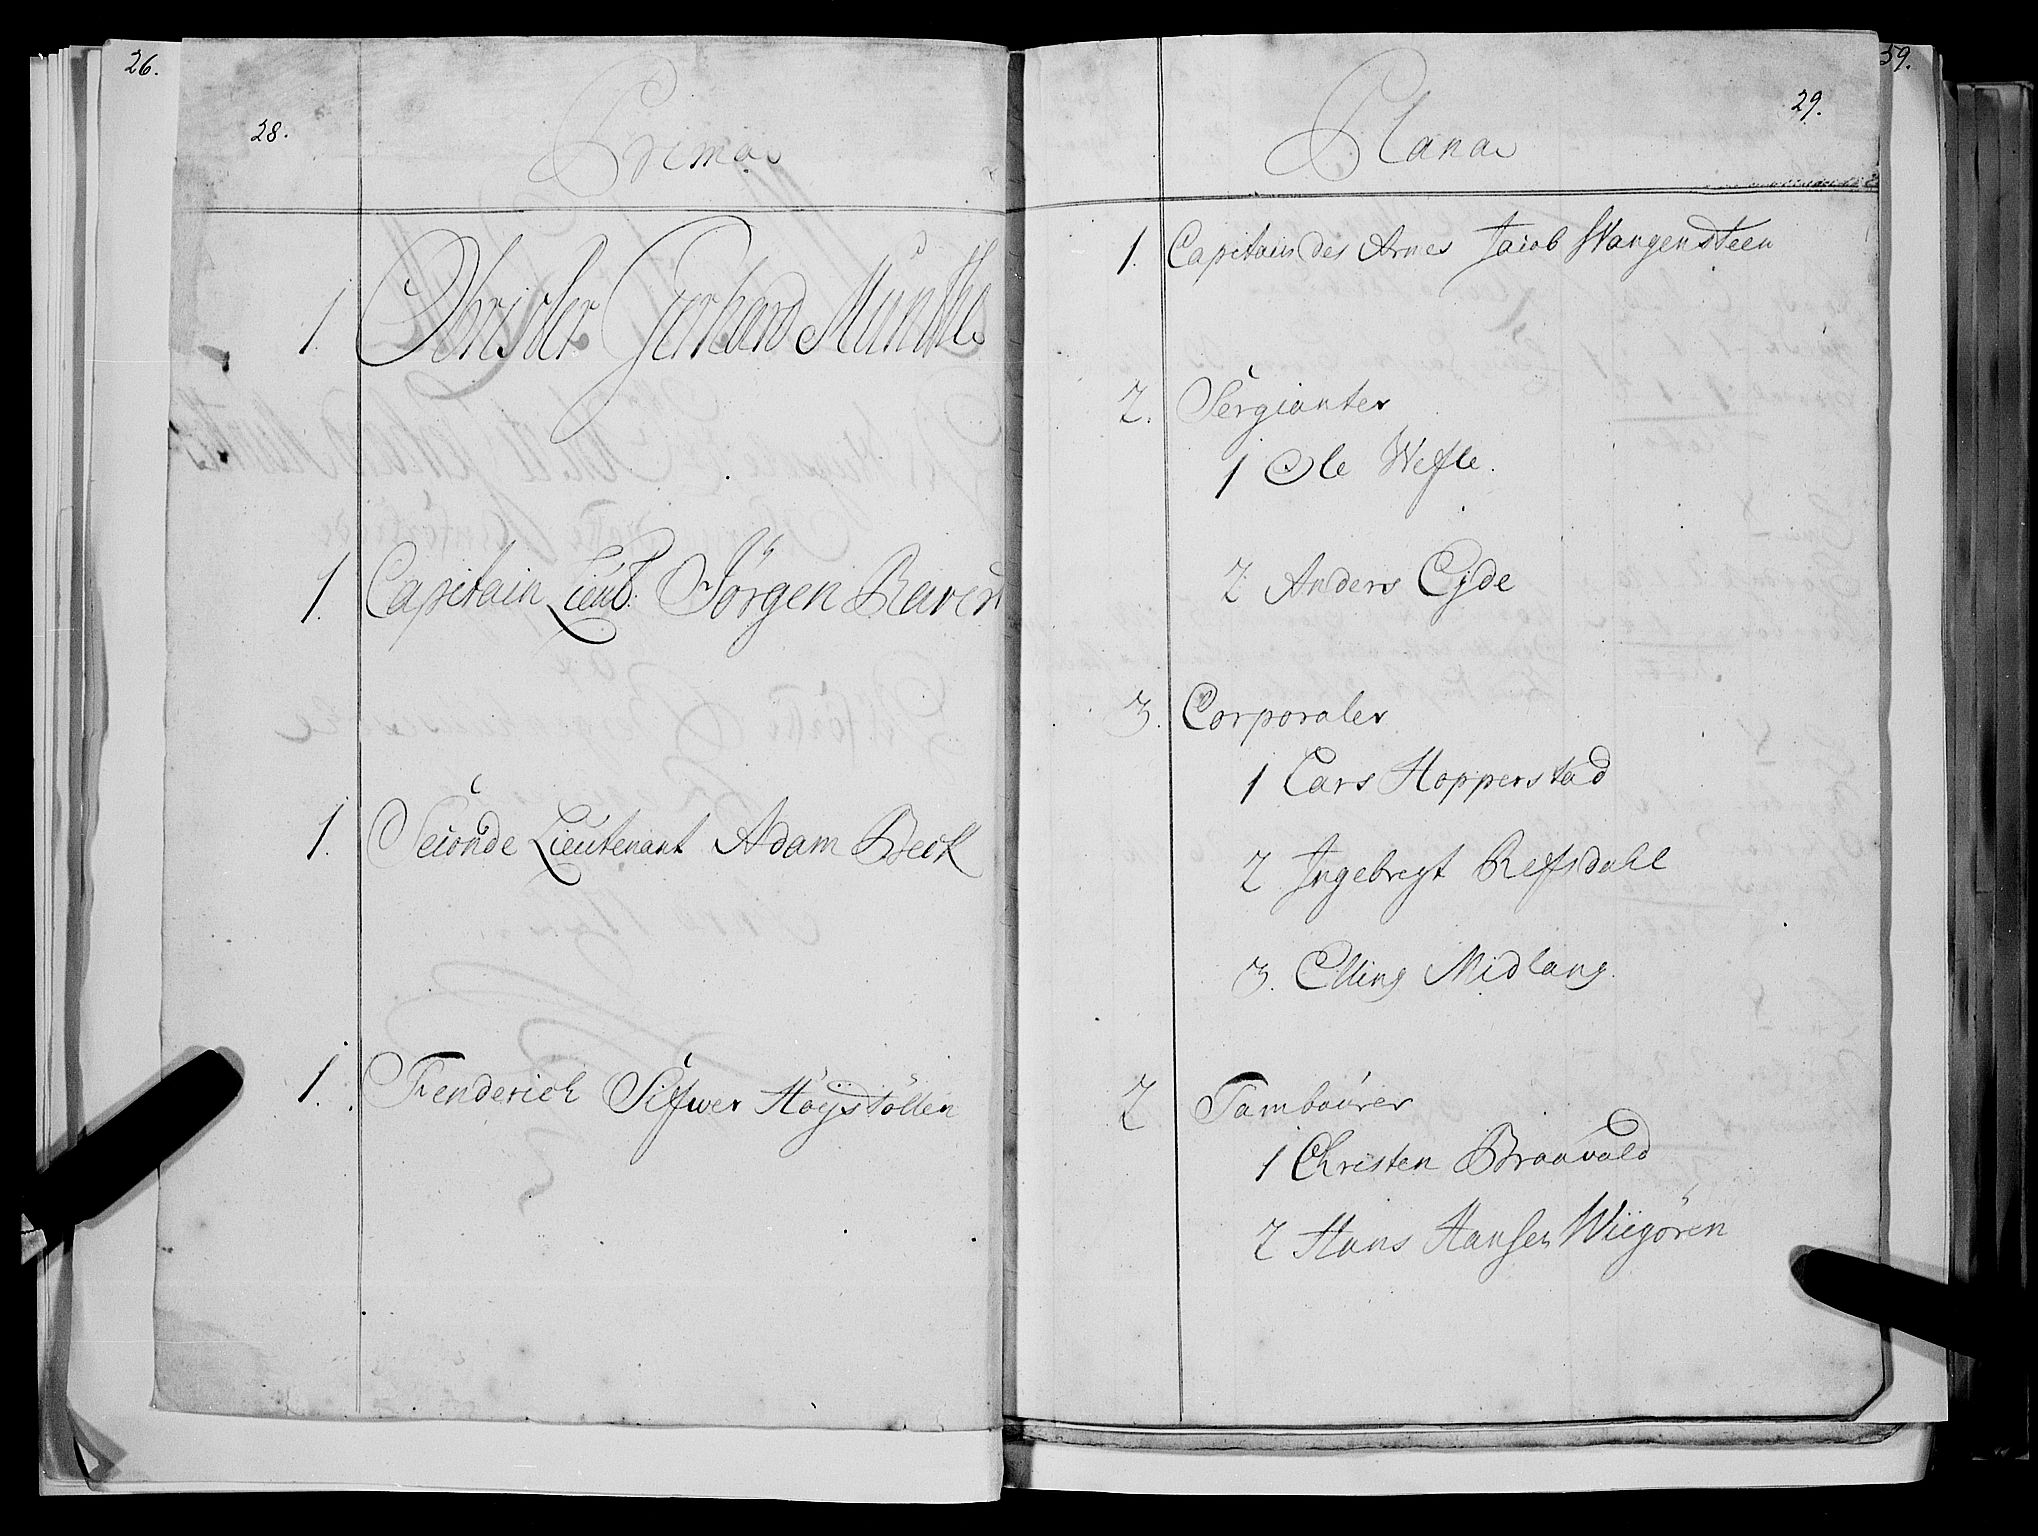 26.
28.
Prima
1. Obrister Gerhard Munthe
1. Capitain Lieut: Jörgen Raven
1. Seconde Lieutenant Adam Beck
1. Fenderich Sifwer Höystöllen
59.
29.
Plana
1. Capitain des Armes Jacob Wangensteen
2. Sergianter
1 Ole Wefle.
2 Anders Eyde
3. Corporaler
1 Lars Hopperstad
2 Ingebregt Refsdahl
3. Elling Midlang.
2 Tambourer
1 Christen Braavold
2 Hans Hansen Wiigören